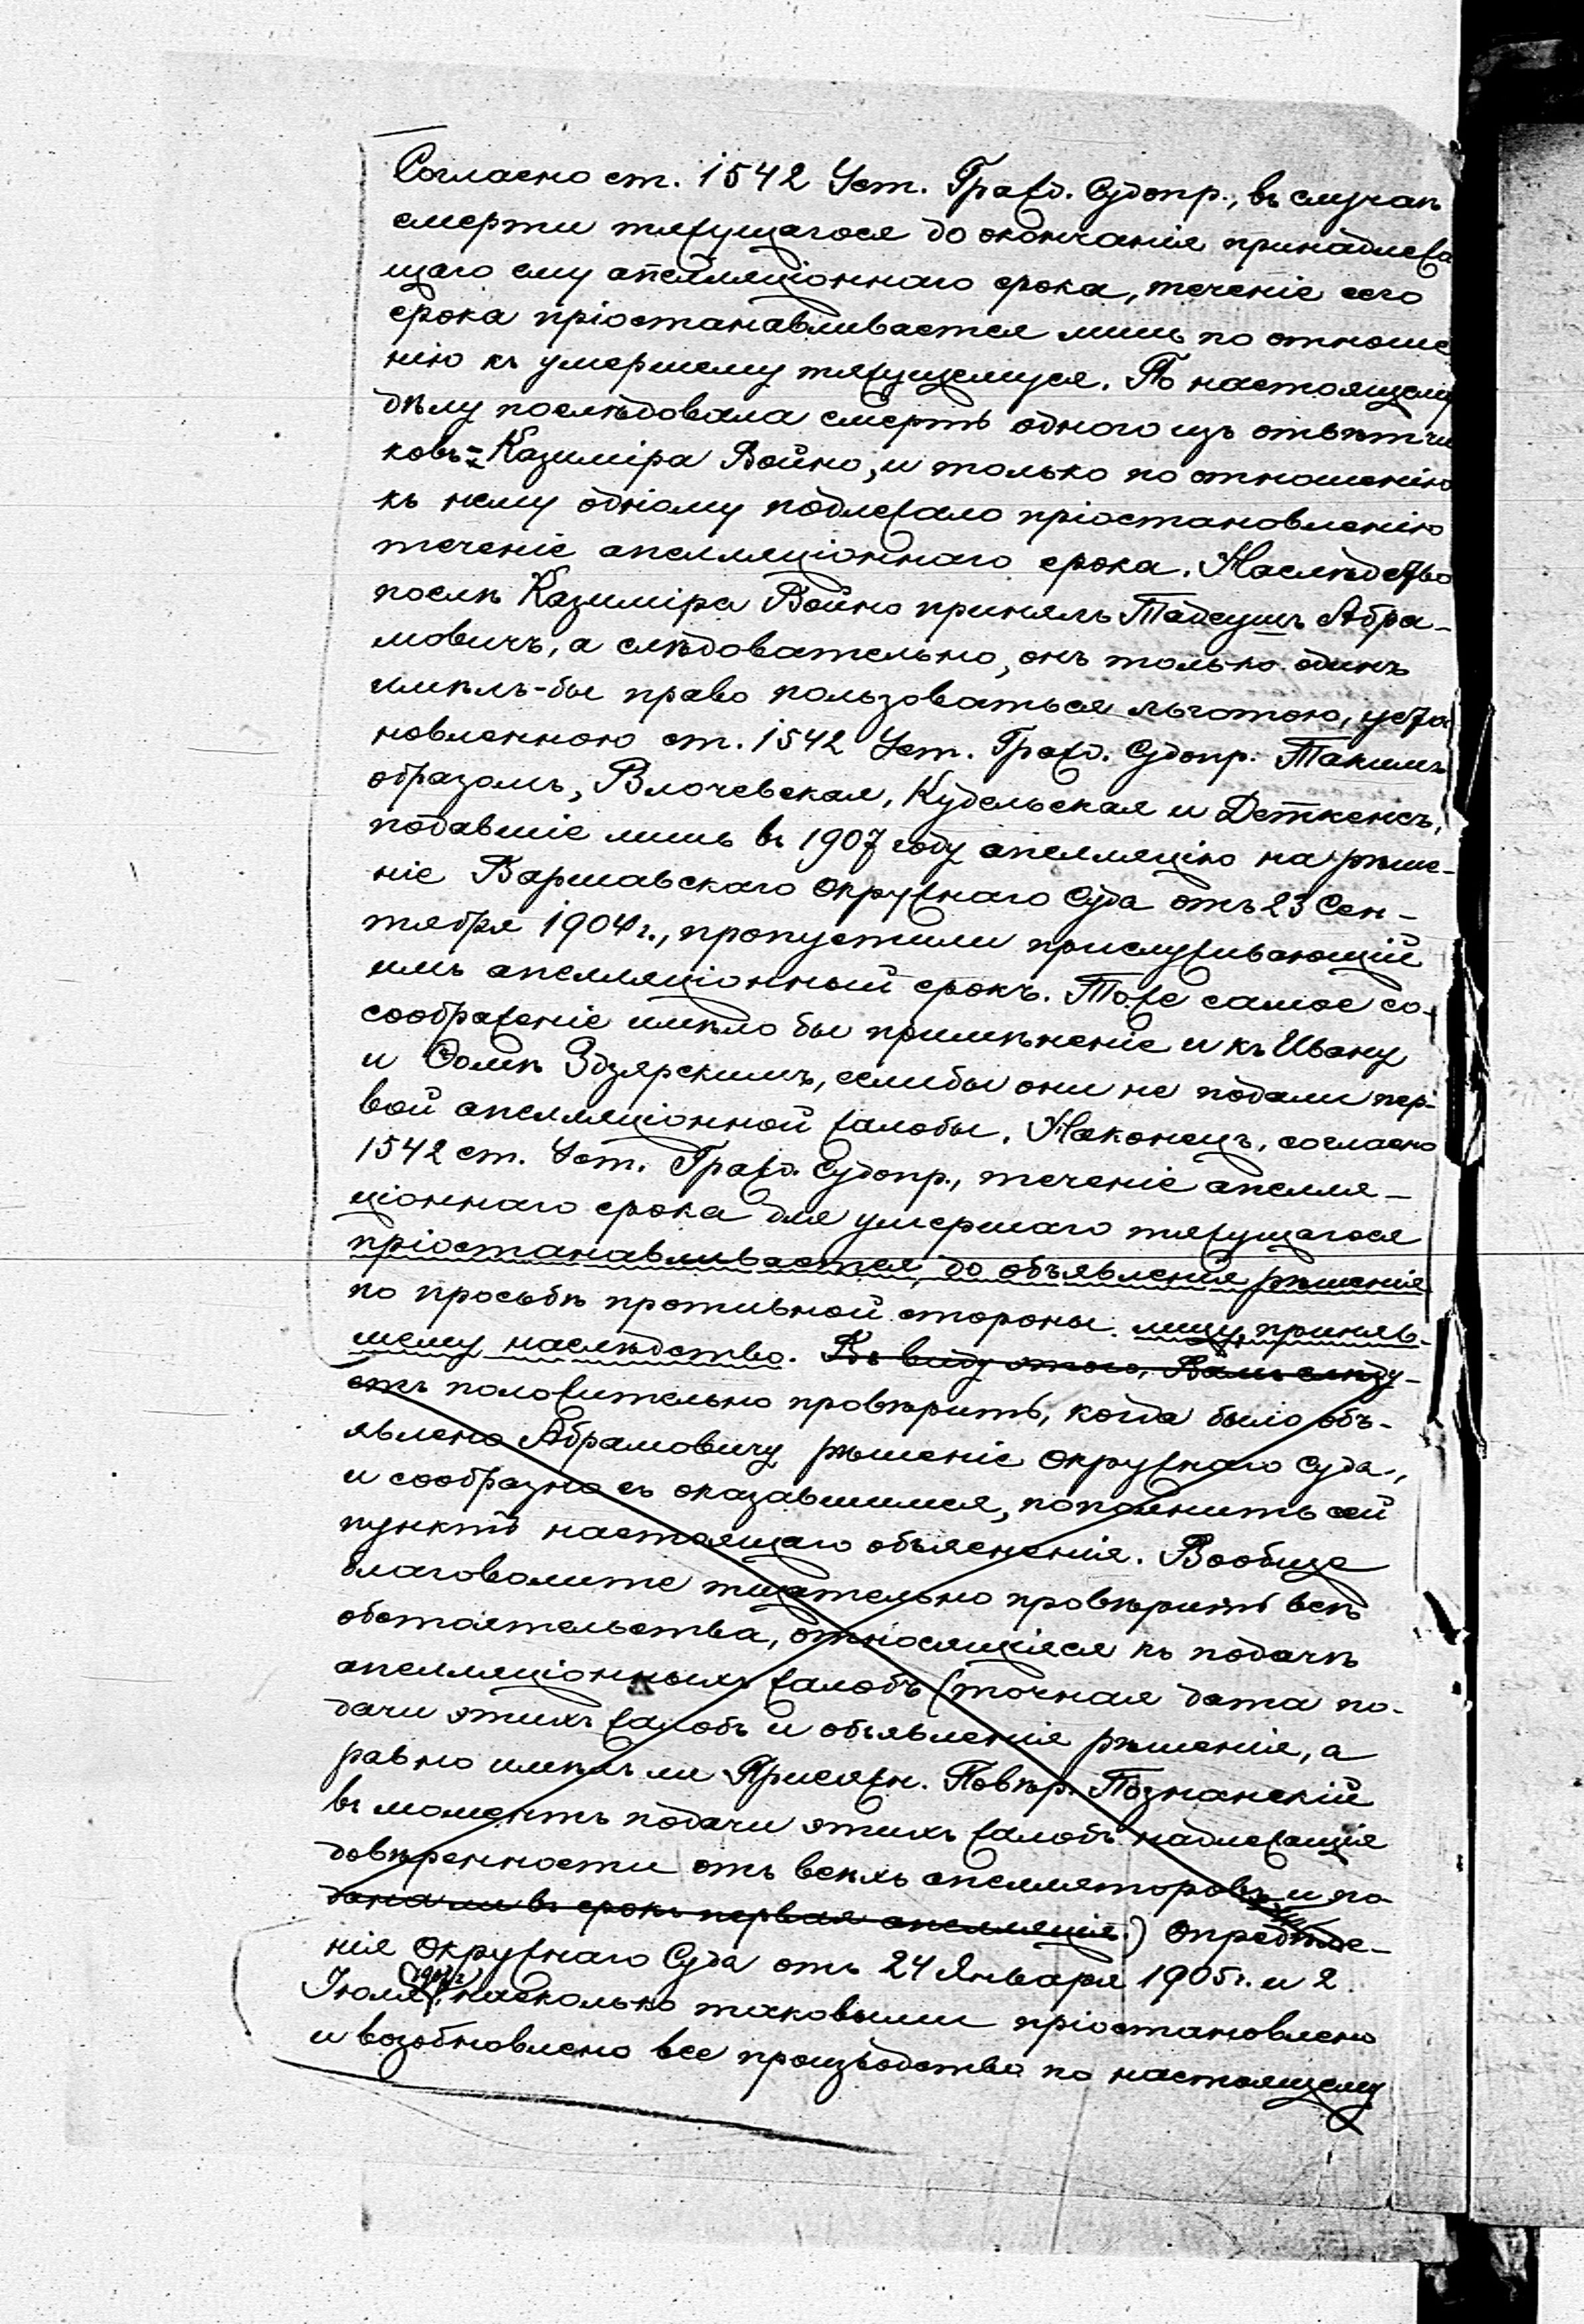 Согласно ст. 1542 Уст. Гражд. Судопр., въ случаѣ
смерти тяжущагося до окончанія принадлежа
щаго ему апелляціоннаго срока, теченіе сего
срока пріостанавливается лишь по отноше
нію къ умершему тяжущемуся. По настоящему
дѣлу послѣдовала смерть одного изъ отвѣтчи
ковъ - Казиміра Война, и только по отношенію
къ нему одному подлежало пріостановленію
теченіе апелляціоннаго срока. Наслѣдство
послѣ Казиміра Война принялъ Тадеушъ Абра-
мовичъ, а слѣдовательно, онъ только одинъ
имѣлъ-бы право пользоваться льготою, уста
новленною ст. 1542 Уст. Гражд. Судопр. Такимъ
образомъ, Влочевская, Кудельская и Деткенсъ,
подавшіе лишь въ 1907 году апелляцію на рѣше-
ніе Варшавскаго Окружнаго Суда отъ 23 Сен-
тября 1904 г., пропустили прислуживающій
имъ апелляціонный срокъ. Тоже самое со-
сображеніе имѣло бы примѣненіе и къ Ивану
и Саломѣ Здзярскимъ, еслибы они не подали пер-
вой апелляціонной жалобы. Наконецъ, согласно
1542 ст. Уст. Гражд. Судопр., теченіе апелля-
ціоннаго срока для умершаго тяжущагося
пріостанавливается до объявленія рѣшенія
по просьбѣ противной стороны лицу, приняв-
шему наслѣдство. Въ виду этого, Вамъ слѣду-
етъ положительно провѣрить, когда было объ-
явлено Абрамовичу рѣшеніе Окружнаго Суда,
и сообразно съ оказавшимся, пополнить сей
пунктъ настоящаго объясненія. Вообще
благоволите тщательно провѣрить всѣ
обстоятельства, относящіяся къ подачѣ
апелляціонныхъ жалобъ (точная дата по-
дачи этихъ жалобъ и объявленія рѣшенія, а
равно имѣлъ ли Присяжн. Повѣр. Познанскій
въ моментъ подачи этихъ жалобъ надлежащія
довѣренности отъ всѣхъ апелляторовъ и по
дана ли въ срокъ первая апелляція.) Опредѣле-
нія Окружнаго Суда отъ 24 Января 1905 г. и 2
Іюля насколько таковыми пріостановлено
и возобновлено все производство по настоящему